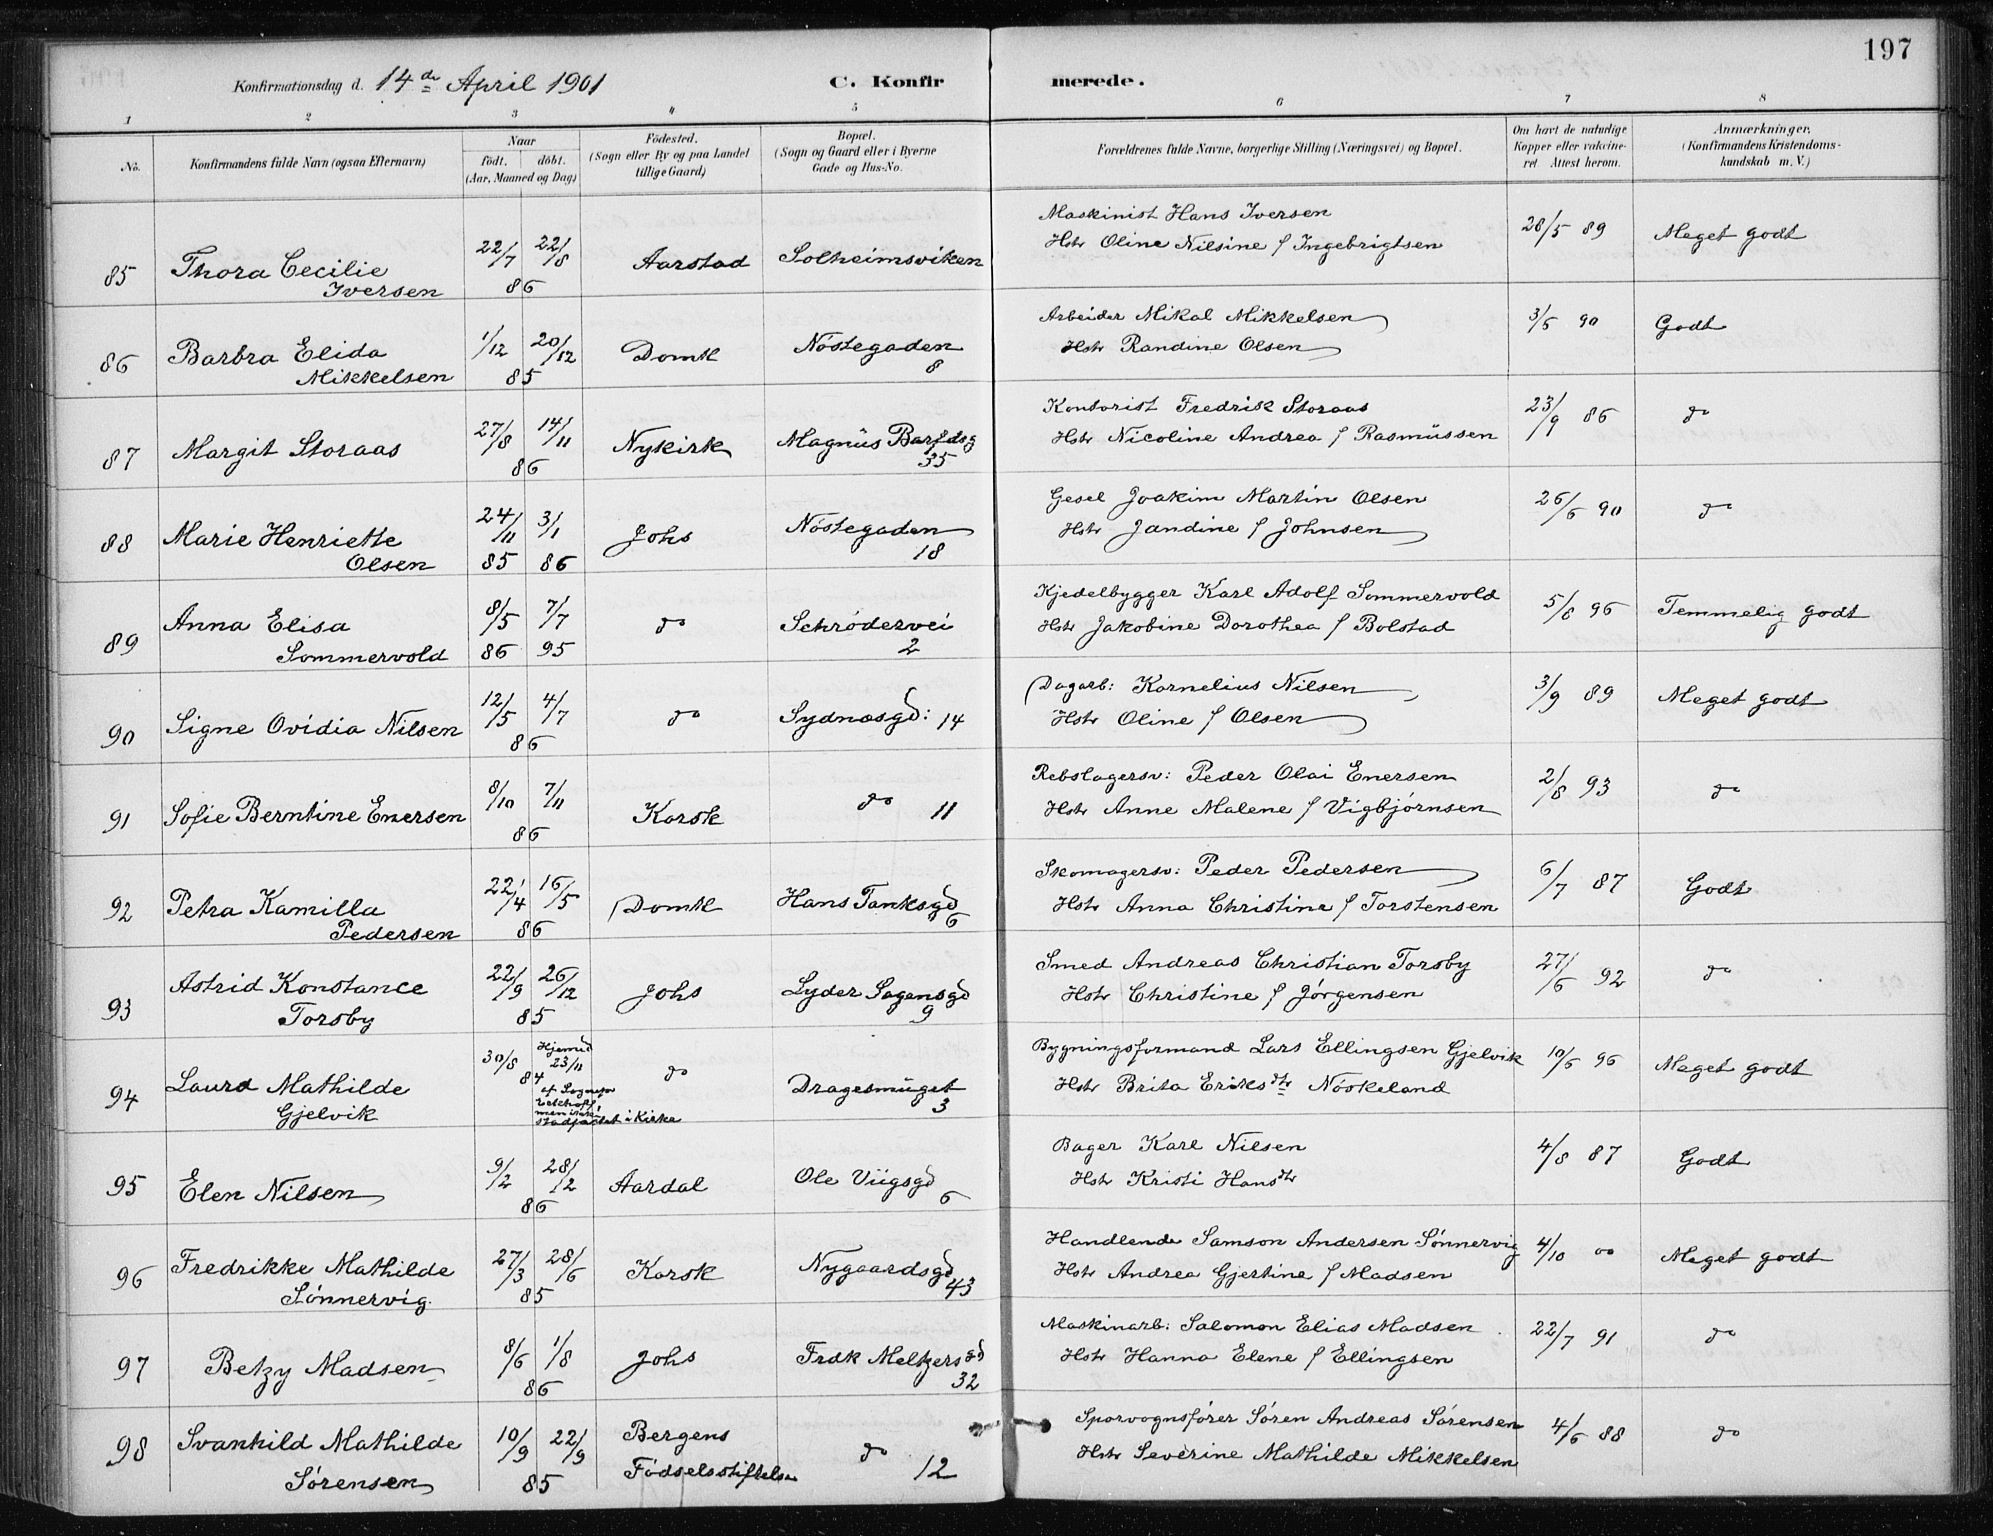 197
Konfirmationsdag d. 14de April 1901 C. Konfirmerede.
1 2 3 4 5 6 7 8
No. Konfirmandens fulde Navn (ogsaa Efternavn)
Naar
födt. döbt.
(Aar, Maaned og Dag)
Födested.
(Sogn eller By og paa Landet
tillige Gaard)
Bopæl.
(Sogn og Gaard eller i Byerne
Gade og Hus-No.
Forældrenes fulde Navne, borgerlige Stilling (Næringsvei) og Bopæl.
Om havt de naturlige
Kopper eller vakcine-
ret Attest herom.
Anmærkninger.
(Konfirmandens Kristendoms-
kundskab m. V.)
85 Thora Cecilie
Iversen
22/7 22/8
86
Aarstad
Solheimsviken
Maskinist Hans Iversen
Hstr Oline Nilsine f Ingebrigtsen
28/5 89
Meget godt
86 Barbra Elida
Mikkelsen
1/12 20/12
85
Domk
Nöstegaden
8
Arbeider Mikal Mikkelsen
Hstr Randine Olsen
3/6 90
Godt
87 Margit Storaas
27/8 14/11
86
Nykirk
Magnus Barfdsg
35
Kontorist Fredrik Storaas
Hstr Nicoline Andrea f Rasmussen
23/9 86
do
88 Marie Henriette
Olsen
24/11 3/1
85 86
Johs
Nöstegaden
18
Gesel Joakim Martin Olsen
Hstr Jandine f Johnsen
26/6 90
do
89 Anna Elisa
Sommervold
8/5 7/7
86 95
do
Schrödervei
2
Kjedelbygger Karl Adolf Sommervold
Hstr Jakobine Dorothea f Bolstad
5/8 96
Temmelig godt
90 Signe Ovidia Nilsen
12/5 4/7
86
do
Sydnæsgd: 14
Dagarb: Kornelius Nilsen
Hstr Oline f Olsen
3/9 89
Meget godt
91 Sofie Berntine Enersen
8/10 7/11
86
Korsk
do 11
Rebslagersv: Peder Olai Enersen
Hstr Anne Malene f Vigbjörnsen
2/8 93
do
92 Petra Kamilla
Pedersen
22/4 16/5
86
Domk
Hans Tanksgd
6
Skomagersv: Peder Pedersen
Hstr Anna Christine f Torstensen
6/7 87
Godt
93 Astrid Konstance
Torsby
22/9 26/12
85
Johs
Lyder Sagensgd
9
Smed Andreas Christian Torsby
Hstr Christine f Jörgensen
27/6 92
do
94 Laura Mathilde
Gjelvik
30/8 Hjemd
23/11
84
af Sogenpr
men ikke
stadfæstet i Kirke
do
Dragesmuget
3
Bygningsformand Lars Ellingsen Gjelvik
Hstr Brita Eriksdtr Nöskeland
10/6 96
Meget godt
95 Elen Nilsen
9/2 28/2
86
Aardal
Ole Viigsgd
6
Bager Karl Nilsen
Hstr Kristi Hansdtr
4/8 87
Godt
96 Fredrikke Mathilde
Sönnervig.
27/3 28/6
85
Korsk
Nygaardsgd
43
Handlende Samson Andersen Sönnervig
Hstr Andrea Gjertine f Madsen
4/10 00
Meget godt
97 Betzy Madsen
8/6 1/8
86
Johs
Frdk Meltzersgd
32
Maskinarb: Salomon Elias Madsen
Hstr Hanna Elene f Ellingsen
22/7 91
do
98 Svanhild Mathilde
Sörensen
10/9 22/9
85
Bergens
Födselsstiftelse
do
12
Sporvognsförer Sören Andreas Sörensen
Hstr Severine Mathilde Mikkelsen
4/6 88
do